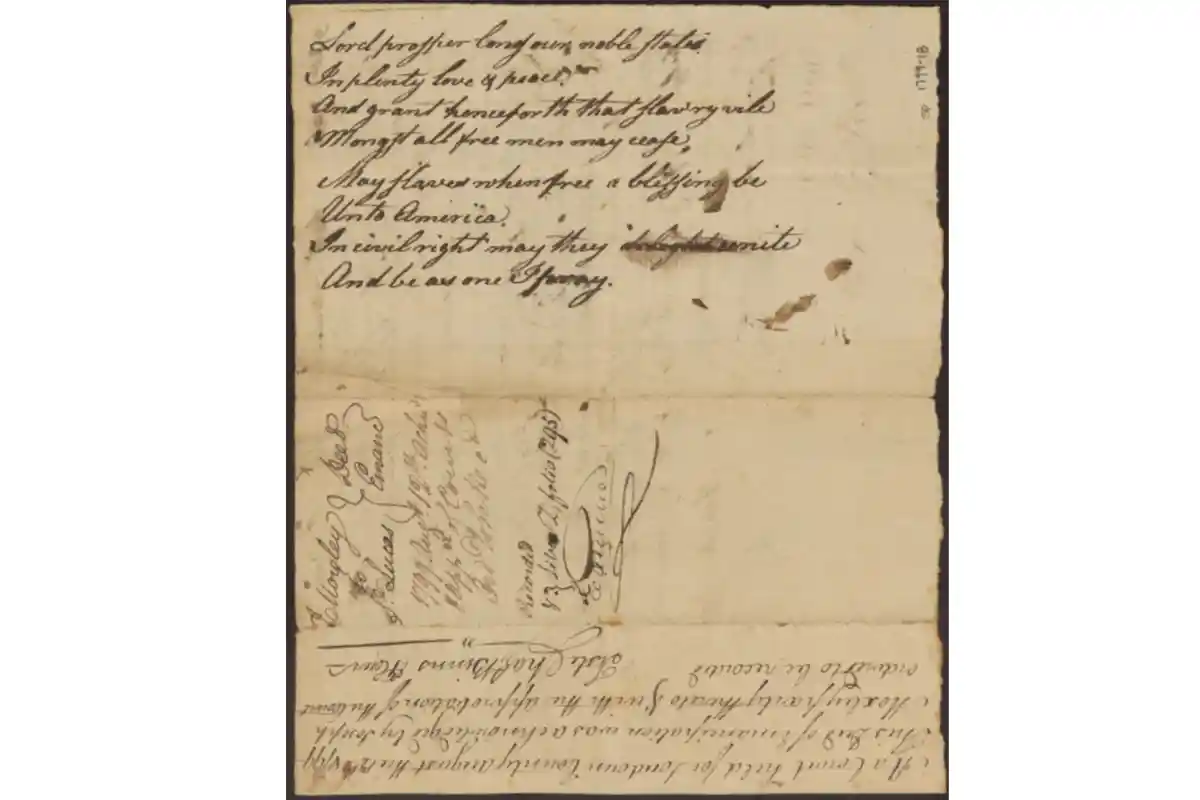 Lord prosper long our noble states
In plenty love & peace.
And grant henceforth that slav'ry vile
Mongst all free men may cease.
May slaves when free a blessing be
Unto America.
In civil right may they unite
And be as one I pray.
1799-18
Moxley
to
Lucas
Deed
Emanc
1799 Augt 12th Ackd
Recorded
Liber Z folio (295)
At a Court held for Loudoun County August the 12th 1799
This Deed of Emancipation was acknowledged by Joseph
Moxley party thereto & with the approbation of the Court
ordered to be recorded
Teste Chas. Binns